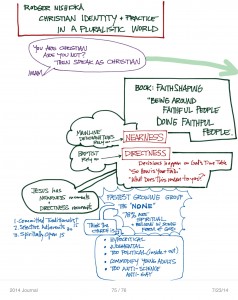 RODGER NISHIOKA
CHRISTIAN IDENTITY + PRACTICE
IN A PLURALISTIC WORLD
YOU ARE CHRISTIAN
ARE YOU NOT?
THEN SPEAK AS CHRISTIAN
IMAM
BOOK: FAITHSHAPING
"BEING AROUND
FAITHFUL PEOPLE
DOING FAITHFUL
PEOPLE
MAINLINE
DENOMINATIONS
RELY ON
NEARNESS
BAPTIST
RELY ON
DIRECTNESS
Decisions happen on God's Time Table
"So How is Your Faith"
"What Does This mean to you?"
JESUS HAS
NEARNESS MOMENTS
DIRECTNESS MOMENTS
FASTEST GROWING GROUP
THE "NONE"
1. Committed Traditionalist
2. Selective
3. Spiritually Open
THINK THE
CHURCH IS
SPIRITUAL
• BELIEVE IN SOME
FORM OF GOD
• HYPOCRITICAL
• JUDGMENTAL
• TOO POLITICAL
• TOO ANTI-SCIENCE
ANTI-GAY
2014 Journal
75 / 76
7/23/14